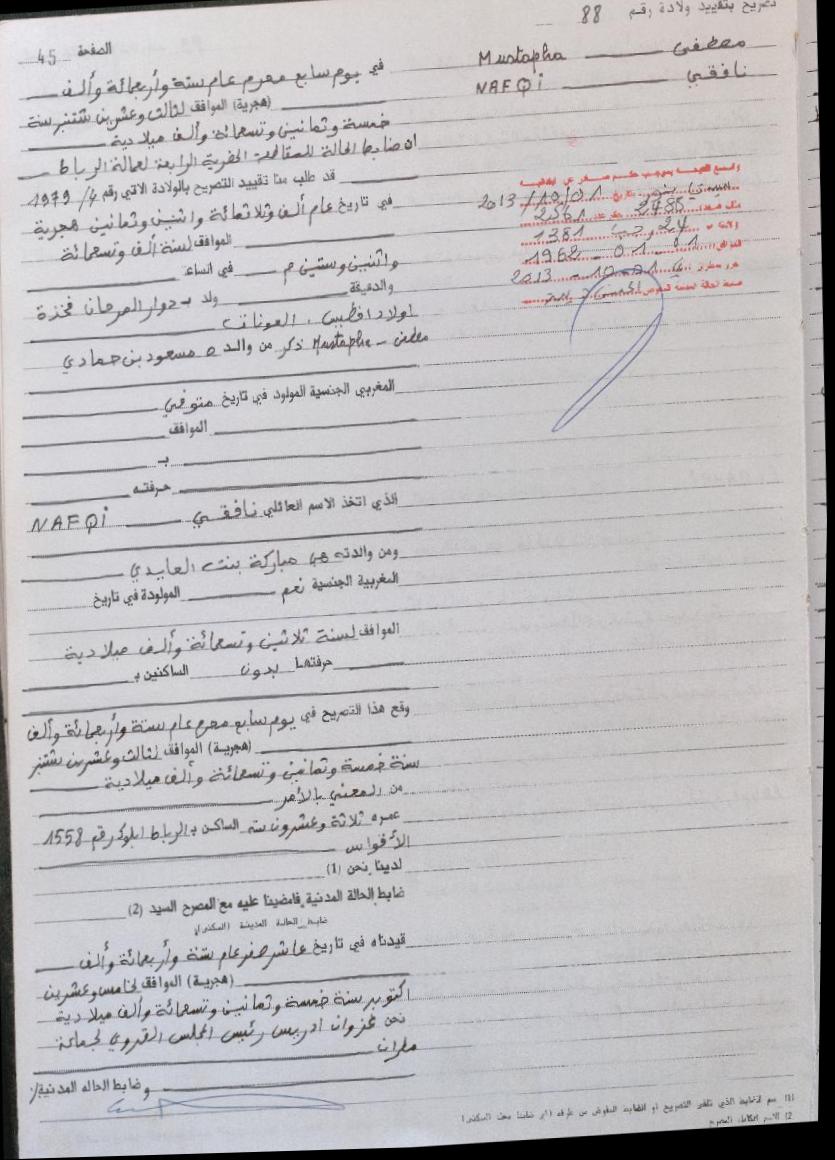 تصريح بتقييد ولادة رقم 88
مصطفى Mustapha
نافقي NAFQi
الصفحة 45
في يوم سابع محرم عام ستة وأربعمائة وألف
(هجرية) الموافق لثالث وعشرين شتنبر سنة
خمسة وثمانين وتسعمائة وألف ميلادية
ان ضابط الحالة للمقاطعة الحضرية الرابعة لعمالة الرباط
قد طلب منا تقييد التصريح بالولادة الآتي رقم 4/1979
في تاريخ عام ألف وثلاثمائة واثنين وثمانين هجرية
الموافق لسنة ألف وتسعمائة
واثنين وستين م في الساعة
والدقيقة ولد بـ دوار المرجان فخذة
اولاد ، العونات
مصطفى - Mustapha ذكر من والده مسعود بن حمادي
المغربي الجنسية المولود في تاريخ متوفى
الموافق
بـ
حرفته
الذي اتخذ الاسم العائلي نافقي NAFQi
ومن والدته هي مباركة بنت العايدي
المغربية الجنسية نعم المولودة في تاريخ
الموافق لسنة ثلاثين وتسعمائة وألف ميلادية
حرفتها بدون الساكنين بـ
وقع هذا التصريح في يوم سابع محرم عام ستة وأربعمائة وألف
(هجرية) الموافق لثالث وعشرين شتنبر
سنة خمسة وثمانين وتسعمائة وألف ميلادية
من المعني بالأمر
عمره ثلاثة وعشرون سنة الساكن بـ الرباط ابلوك رقم 1558
الأقواس
لدينا نحن (1)
ضابط الحالة المدنية فامضينا عليه مع المصرح السيد (2)
ضابط الحالة المدنية (المكتب)
قيدناه في تاريخ عاشر صفر عام ستة وأربعمائة وألف
(هجرية) الموافق لخامس وعشرين
اكتوبر سنة خمسة وثمانين وتسعمائة وألف ميلادية
نحن غزوان ادريس رئيس المجلس القروي لجماعة
مطران
وضابط الحالة المدنية
بتاريخ 2013/10/01
2485 2361
24 رجب 1381
الموافق 01-01-1962
2013-10-01
(1) اسم الضابط الذي تلقى التصريح أو الضابط المفوض من طرفه
(2) الاسم الكامل للمصرح